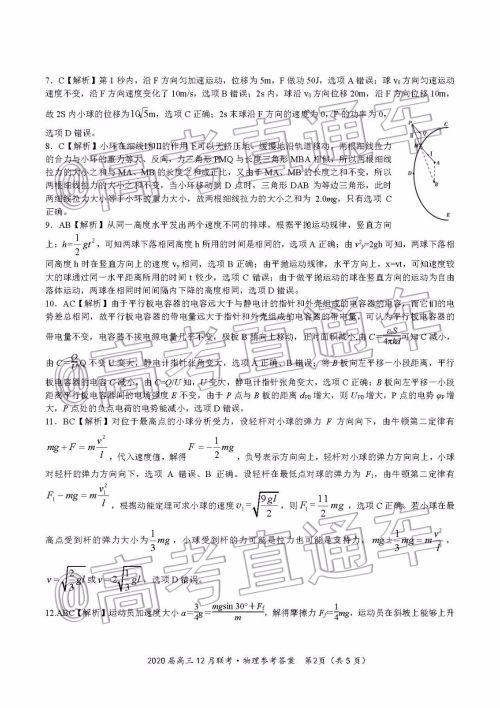 7．C【解析】第1秒内，沿F方向匀加速运动，位移为5m，F做功50J，选项A错误；球v₀方向匀速运动
速度不变，沿F方向速度变化了10m/s，选项B错误；2s内，球沿v₀方向位移20m，沿F方向位移10m，
故2S内小球的位移为10√5m，选项C正确；2s末球沿F方向的速度为0，F的功率为0，
选项D错误。
8．C【解析】小环在细线Ⅰ和Ⅱ的作用下可以无挤压地、缓慢地沿轨道移动，两根细线拉力
的合力与小环的重力等大、反向，力三角形PMQ与长度三角形MBA相似，所以两根细线
拉力的大小之和与MA、MB的长度之和成正比，又由于MA、MB的长度之和不变，所以
两根细线拉力的大小之和不变，当小环移动到D点时，三角形DAB为等边三角形，此时
两细线拉力大小等于小环的重力大小，故两根细线拉力的大小之和为2.0mg，只有选项C
正确。
9．AB【解析】从同一高度水平发出两个速度不同的排球，根据平抛运动规律，竖直方向
上：h=1/2 gt²，可知两球下落相同高度h所用的时间是相同的，选项A正确；由v²y=2gh可知，两球下落相
同高度h时在竖直方向上的速度vy相同，选项B正确；由平抛运动规律，水平方向上，x=vt，可知速度较
大的球通过同一水平距离所用的时间t较少，选项C错误；由于做平抛运动的球在竖直方向的运动为自由
落体运动，两球在相同时间间隔内下降的高度相同，选项D错误。
10．AC【解析】由于平行板电容器的电容远大于与静电计的指针和外壳组成的电容器的电容，而它们的电
势差总相同，故平行板电容器的带电量远大于指针和外壳组成的电容器的带电量，可认为平行板电容器的
带电量不变，电容器不接电源电量几乎不变，极板B稍向上移动，正对面积减小,由C=εᵣS/4πkd可知C减小，
由C=Q/U,Q不变U变大，静电计指针张角变大，选项A正确，B错误；将B板向左平移一小段距离，平行
板电容器的电容C减小，由C=Q/U知，U变大，静电计指针张角变大，选项C正确；B板向左平移一小段
距离平行板电容器间的电场强度E不变，由于P点与B板的距离dPB增大，则UPB增大，P点的电势φP增
大，P点处的负点电荷的电势能减小，选项D错误。
11．BC【解析】对位于最高点的小球分析受力，设轻杆对小球的弹力F方向向下，由牛顿第二定律有
mg+F=m v²/l，代入速度值，解得F=−1/2 mg，负号表示方向向上，轻杆对小球的弹力方向向上，小球
对轻杆的弹力方向向下，选项A错误、B正确。设轻杆在最低点对球的弹力为F₁，由牛顿第二定律有
F₁−mg=m v₁²/l，根据动能定理可求小球的速度v₁=√(9gl/2)，则F₁=11/2 mg，选项C正确；若小球在最
高点受到杆的弹力大小为1/3 mg，小球受到杆的力可能是拉力也可能是支持力，mg±1/3 mg=m v²/l，
v=√(2/3 gl)或v=2√(1/3 gl)，选项D错误。
12.ABC【解析】运动员加速度大小a=3/4 g=(mgsin 30°+Ff)/m，解得摩擦力Ff=1/4 mg，运动员在斜坡上能够上升
2020届高三12月联考·物理参考答案 第2页（共5页）
@高考直通车
@高考直通车
@高考直通车